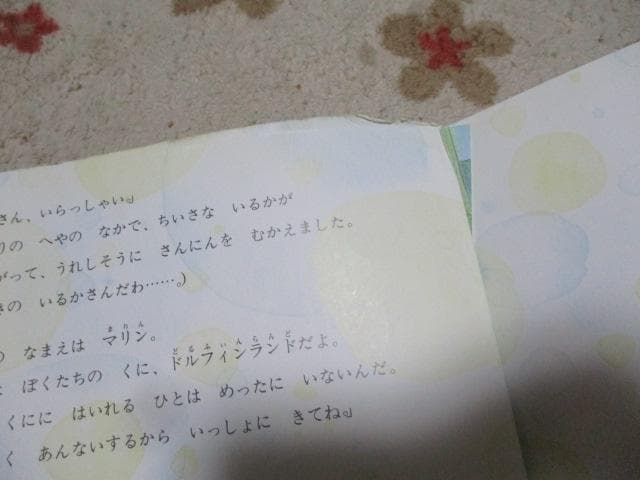 さん、いらっしゃい』
りの へやの なかで、ちいさな いるかが
がって、うれしそうに さんにんを むかえました。
きの いるかさんだわ……。)
なまえは マリン。
ぼくたちの くに、ドルフィンランドだよ。
くにに はいれる ひとは めったに いないんだ。
く あんないするから いっしょに きてね』